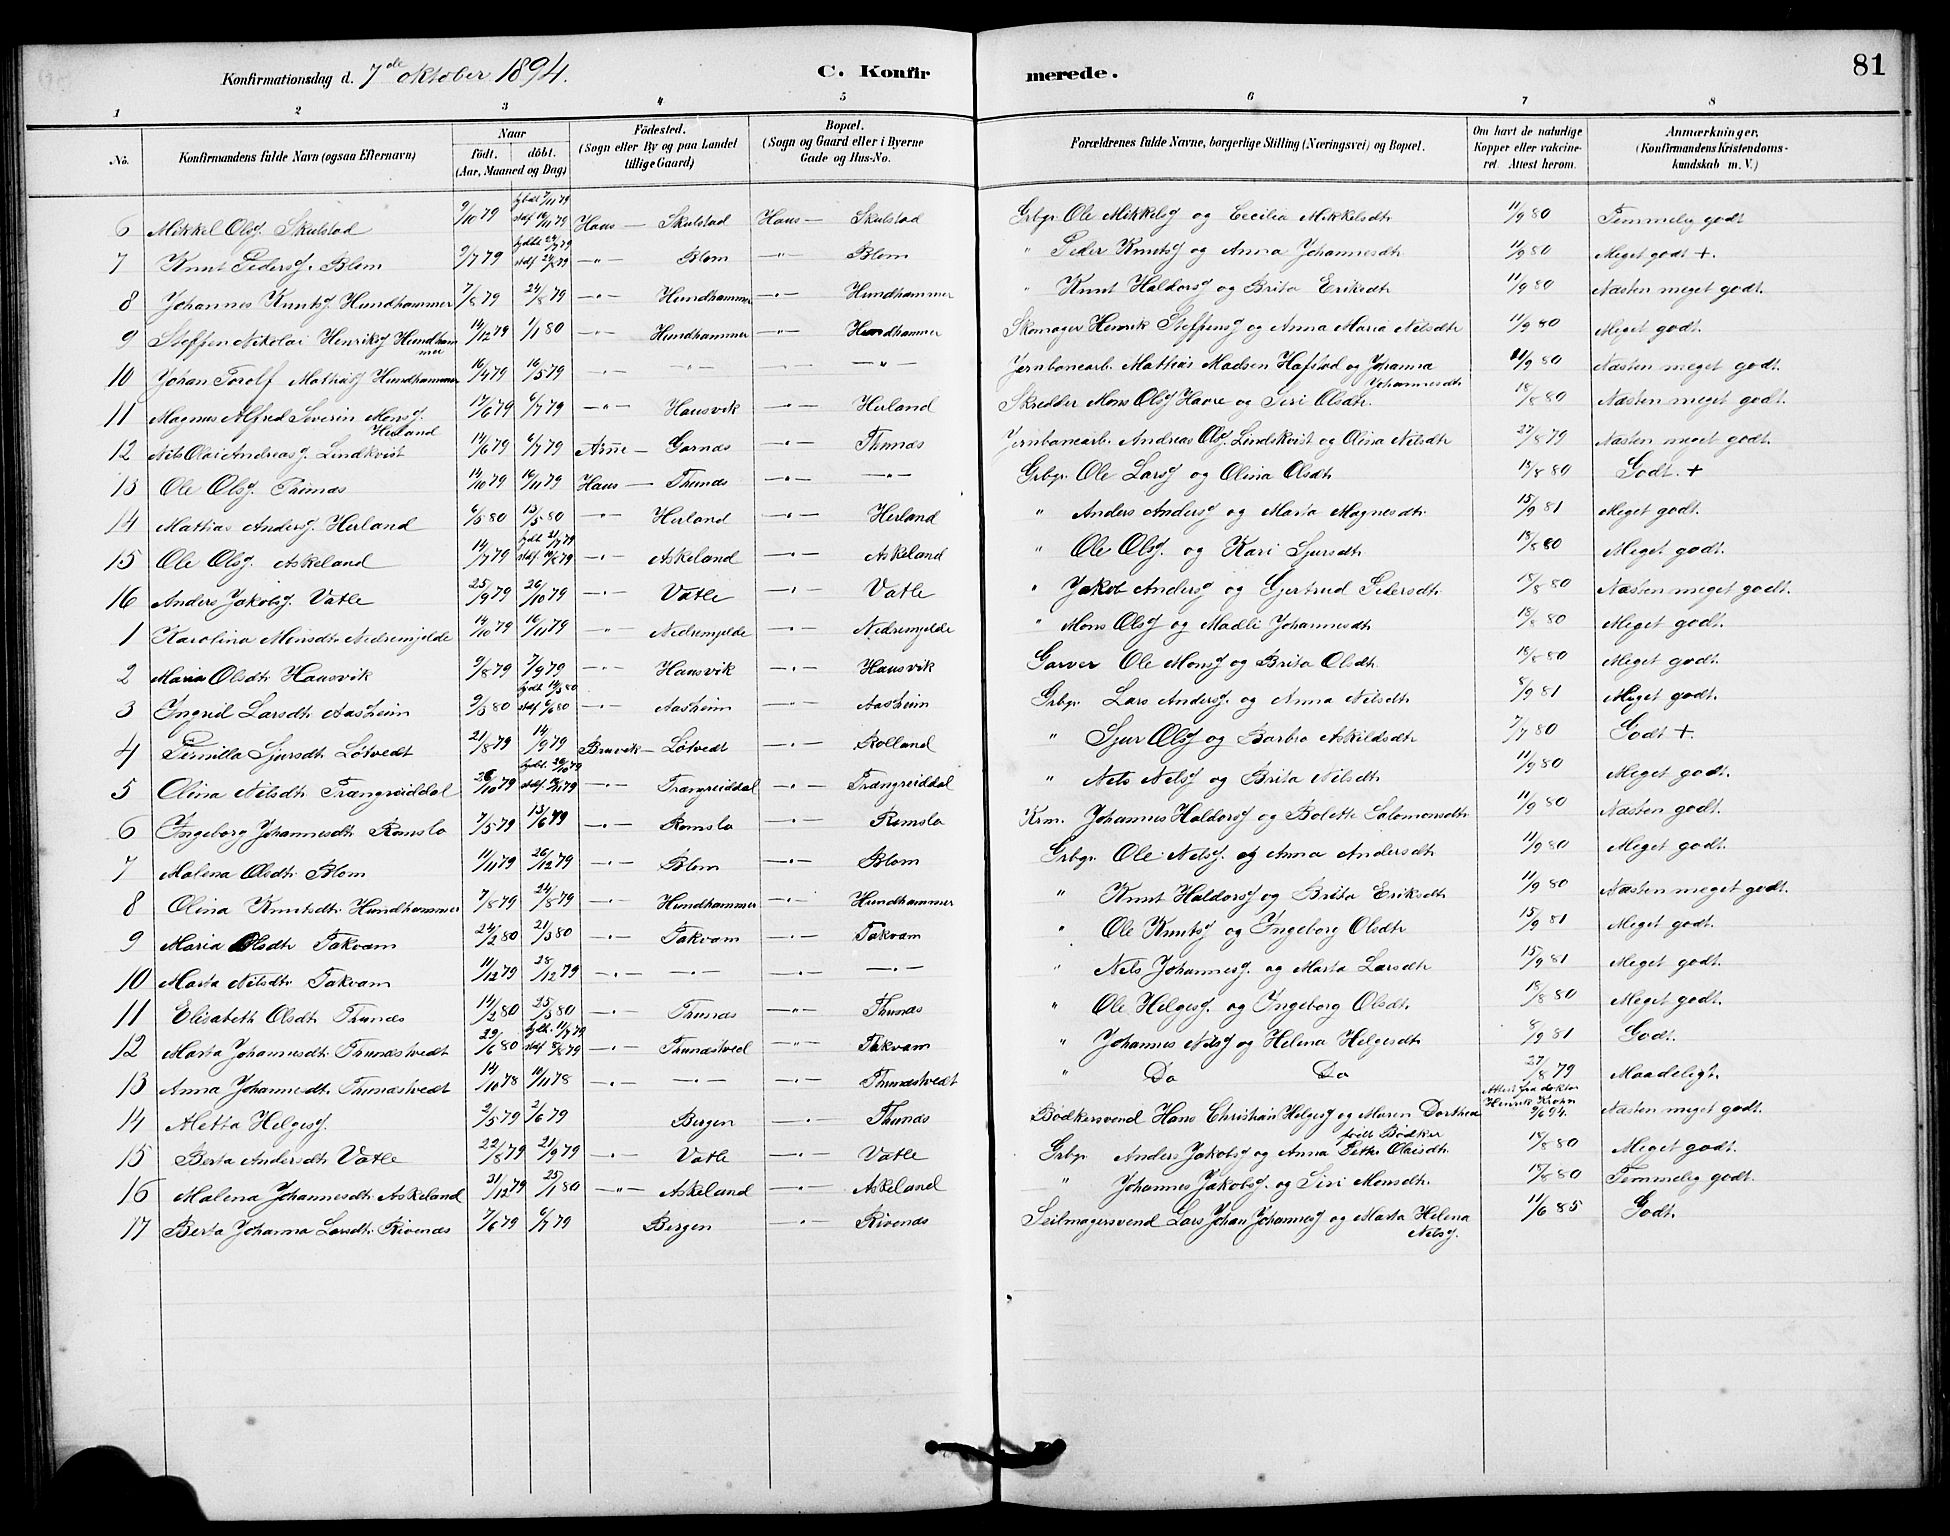 Konfirmationsdag d. 7de oktober 1894. C. Konfirmerede. 81
1 2 3 4 5 6 7 8
No. Konfirmandens fulde Navn (ogsaa Efternavn) Naar födt. döbt. (Aar, Maaned og Dag) Födested. (Sogn eller By og paa Landet tillige Gaard) Bopæl. (Sogn og Gaard eller i Byerne Gade og Hus-No. Forældrenes fulde Navne, borgerlige Stilling (Næringsvei) og Bopæl. Om havt de naturlige Kopper eller vakcineret. Attest herom. Anmærkninger. (Konfirmandens Kristendomskundskab m. V.)
6 Mikkel Olsj Skulstad 9/10 79 hjdbt 7/11 79 stdf 16/11 79 Haus — Skulstad Haus — Skulstad Grbgr. Ole Mikkelsj og Cecilia Mikkelsdtr 11/9 80 Temmelig godt
7 Knut Pedersj. Blom 9/7 79 hjdbt 24/7 79 stdf 24/8 79 —"— Blom —"— Blom " Peder Knutsj og Anna Johannesdtr 11/9 80 Meget godt +.
8 Johannes Knutsj Hundhammer 7/8 79 24/8 79 —"— Hundhammer —"— Hundhammer " Knut Haldorsj og Brita Eriksdtr 11/9 80 Næsten meget godt.
9 Steffen Nikolai Henriksj Hundhammer 14/12 79 1/1 80 —"— Hundhammer —"— Hundhammer Skomager Henrik Steffensj og Anna Maria Nilsdtr 11/9 80 Meget godt.
10 Johan Torolf Mathiasj Hundhammer 16/4 79 16/5 79 —"— —"— —"— Jernbanearb. Mathias Madsen Hafstad og Johanna Johannesdtr 11/9 80 Næsten meget godt.
11 Magnus Alfred Severin Monsj. Herland 17/6 79 6/7 79 —"— Hausvik —"— Herland Skredder Mons Olsj Havre og Siri Olsdtr. 18/8 80 Næsten meget godt.
12 Nils Olai Andreasj Lindkvist 14/6 79 6/7 79 Arne — Garnæs —"— Thunæs Jernbanearb. Andreas Olsj. Lindskvist og Olina Nilsdtr 27/8 79 Næsten meget godt.
13 Ole Olsj. Thunæs 14/10 79 16/11 79 Haus — Thunæs —"— —"— Grbgr. Ole Larsj og Olina Olsdtr 18/8 80 Godt. +
14 Mathias Andersj. Herland 6/5 80 13/5 80 —"— Herland —"— Herland " Anders Andersj og Marta Magnesdtr. 15/9 81 Meget godt.
15 Ole Olsj Askeland 14/7 79 hjdbt 21/7 79 stdf 10/8 79 —"— Askeland —"— Askeland " Ole Olsj. og Kari Sjursdtr 18/8 80 Meget godt.
16 Anders Jakobsj. Vatle 25/9 79 26/10 79 —"— Vatle —"— Vatle " Jakob Andersj og Gjertrud Pedersdtr. 18/8 80 Næsten meget godt.
1 Karolina Monsdtr Nedremjelde 14/10 79 16/11 79 —"— Nedremjelde —"— Nedremjelde " Mons Olsj og Madli Johannesdtr 18/8 80 Meget godt.
2 Maria Olsdtr Hausvik 9/8 79 7/9 79 —"— Hausvik —"— Hausvik Garver Ole Monsj og Brita Olsdtr 18/8 80 Meget godt.
3 Ingrid Larsdtr Aasheim 9/3 80 hjdbt 14/3 80 stdf 6/6 80 —"— Aasheim —"— Aasheim Grbgr. Lars Andersj. og Anna Nilsdtr 8/9 81 Meget godt.
4 Pernilla Sjursdtr Løtvedt 21/8 79 14/9 79 Bruvik — Løtvedt —"— Rolland " Sjur Olsj og Barbro Askildsdtr 7/7 80 Godt +.
5 Olina Nilsdtr Trængreiddal 26/10 79 hjdbt 26/10 79 —"— Trængreiddal —"— Trængreiddal " Nels Nelsj og Brita Nilsdtr 11/9 80 Meget godt.
6 Ingeborg Johannesdtr Romslo 7/5 79 13/6 79 —"— Romslo —"— Romslo Krm. Johannes Haldorsj og Bolette Salomonsdtr. 11/9 80 Næsten godt.
7 Malena Olsdtr Blom 11/11 79 26/12 79 —"— Blom —"— Blom Grbgr. Ole Nelsj. og Anna Andersdtr 11/9 80 Meget godt.
8 Olina Knutsdtr. Hundhammer 7/8 79 24/8 79 —"— Hundhammer —"— Hundhammer " Knut Haldorsj og Brita Eriksdtr. 11/9 80 Næsten meget godt.
9 Maria Olsdtr Takvam 24/2 80 21/3 80 —"— Takvam —"— Takvam " Ole Knutsj og Ingeborg Olsdtr 15/9 81 Meget godt.
10 Marta Nilsdtr Takvam 11/12 79 28/12 79 —"— —"— —"— —"— " Nels Johannesj. og Marta Larsdtr 15/9 81 Meget godt.
11 Elisabeth Olsdtr Thunæs 14/2 80 25/3 80 —"— Thunæs —"— Thunæs " Ole Helgesj. og Ingeborg Olsdtr 18/8 80 Meget godt.
12 Marta Johannesdtr. Thunæstvedt 29/6 80 —"— Thunæstved —"— Takvam " Johannes Nilsj og Helena Helgesdtr 8/9 81 Godt.
13 Anna Johannesdtr Thunæstvedt 14/10 78 10/11 78 —"— —"— —"— Thunæstvedt " Do Do 27/8 79 Maadeligt.
14 Metta Helgesj. 2/5 79 2/6 79 Bergen —"— Thunæs Bødkersvend Hans Christian Helgesj og Maren Dorthea født Bødker Attest fra doktor Henrik Krohn 9/6 94. Næsten meget godt.
15 Berta Andersdtr Vatle 22/8 79 21/9 79 —"— Vatle —"— Vatle Grbgr Anders Jakobsj og Anna Petter Olaisdtr 18/8 80 Meget godt.
16 Malena Johannesdtr. Askeland 21/12 79 25/1 80 —"— Askeland —"— Askeland " Johannes Jakobsj. og Siri Monsdtr. 18/8 80 Temmelig godt.
17 Berta Johanna Larsdtr. Rivenæs 7/6 79 6/7 79 Bergen —"— Rivenæs Seilmagersvend Lars Johan Johannesj og Marta Helena Nelsj. 11/6 85 Godt.